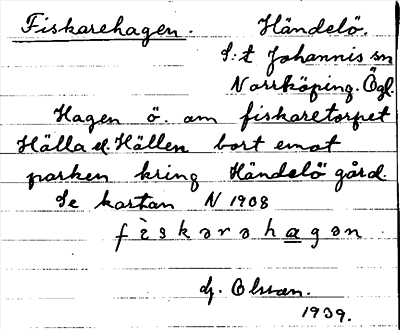 Fiskarehagen. Händelö.
S:t Johannis sn
Norrköping. Ögl.
Hagen ö. om fiskaretorpet
Hälla el. Hällen bort emot
parken kring Händelö gård.
Se kartan N 1908
fìskarəhagən
Olsson.
1939.